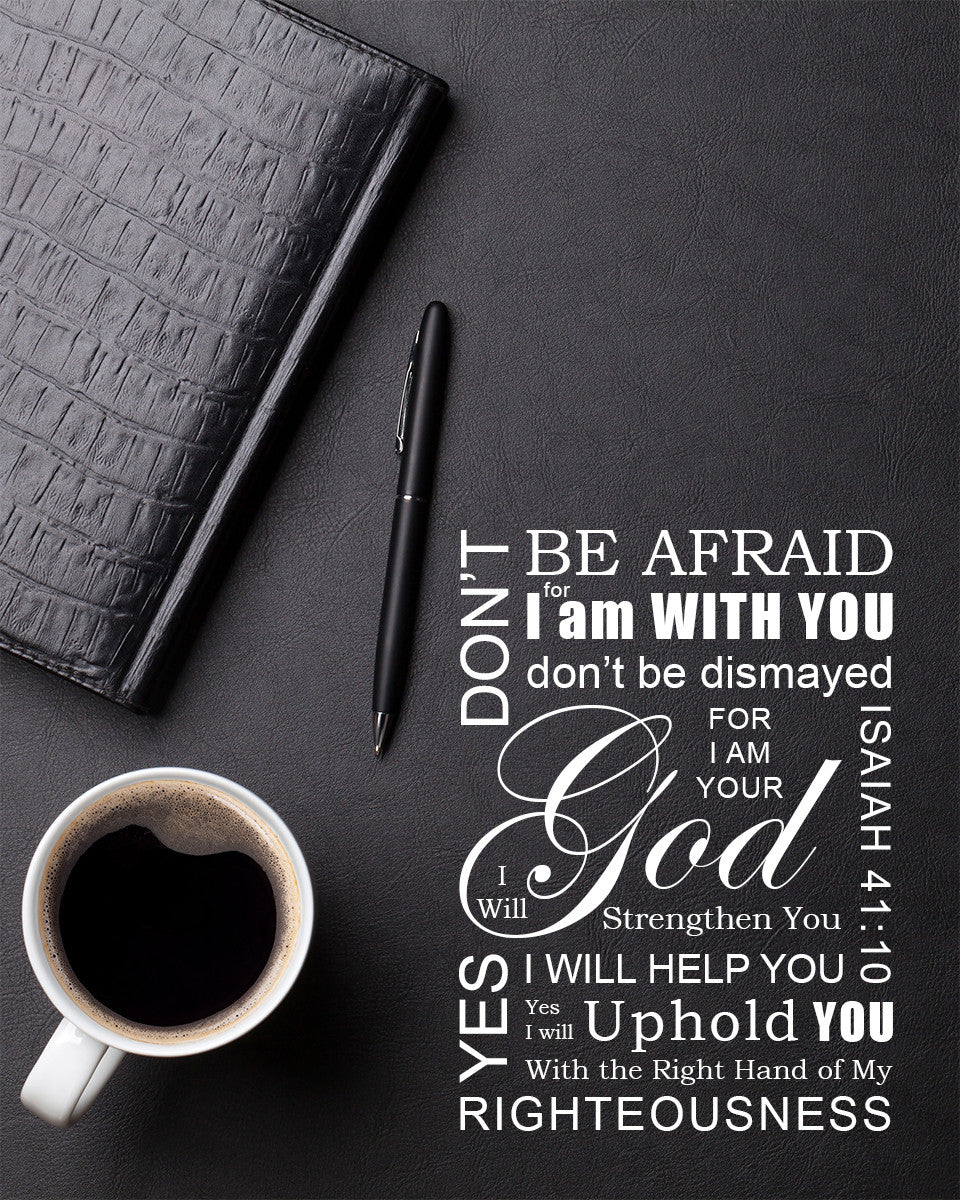 DON'T
BE AFRAID
for
I am WITH YOU
don't be dismayed
FOR
I AM
YOUR
God
I
Will
Strengthen You
YES
I WILL HELP YOU
Yes
I will
Uphold YOU
With the Right Hand of My
RIGHTEOUSNESS
ISAIAH 41:10